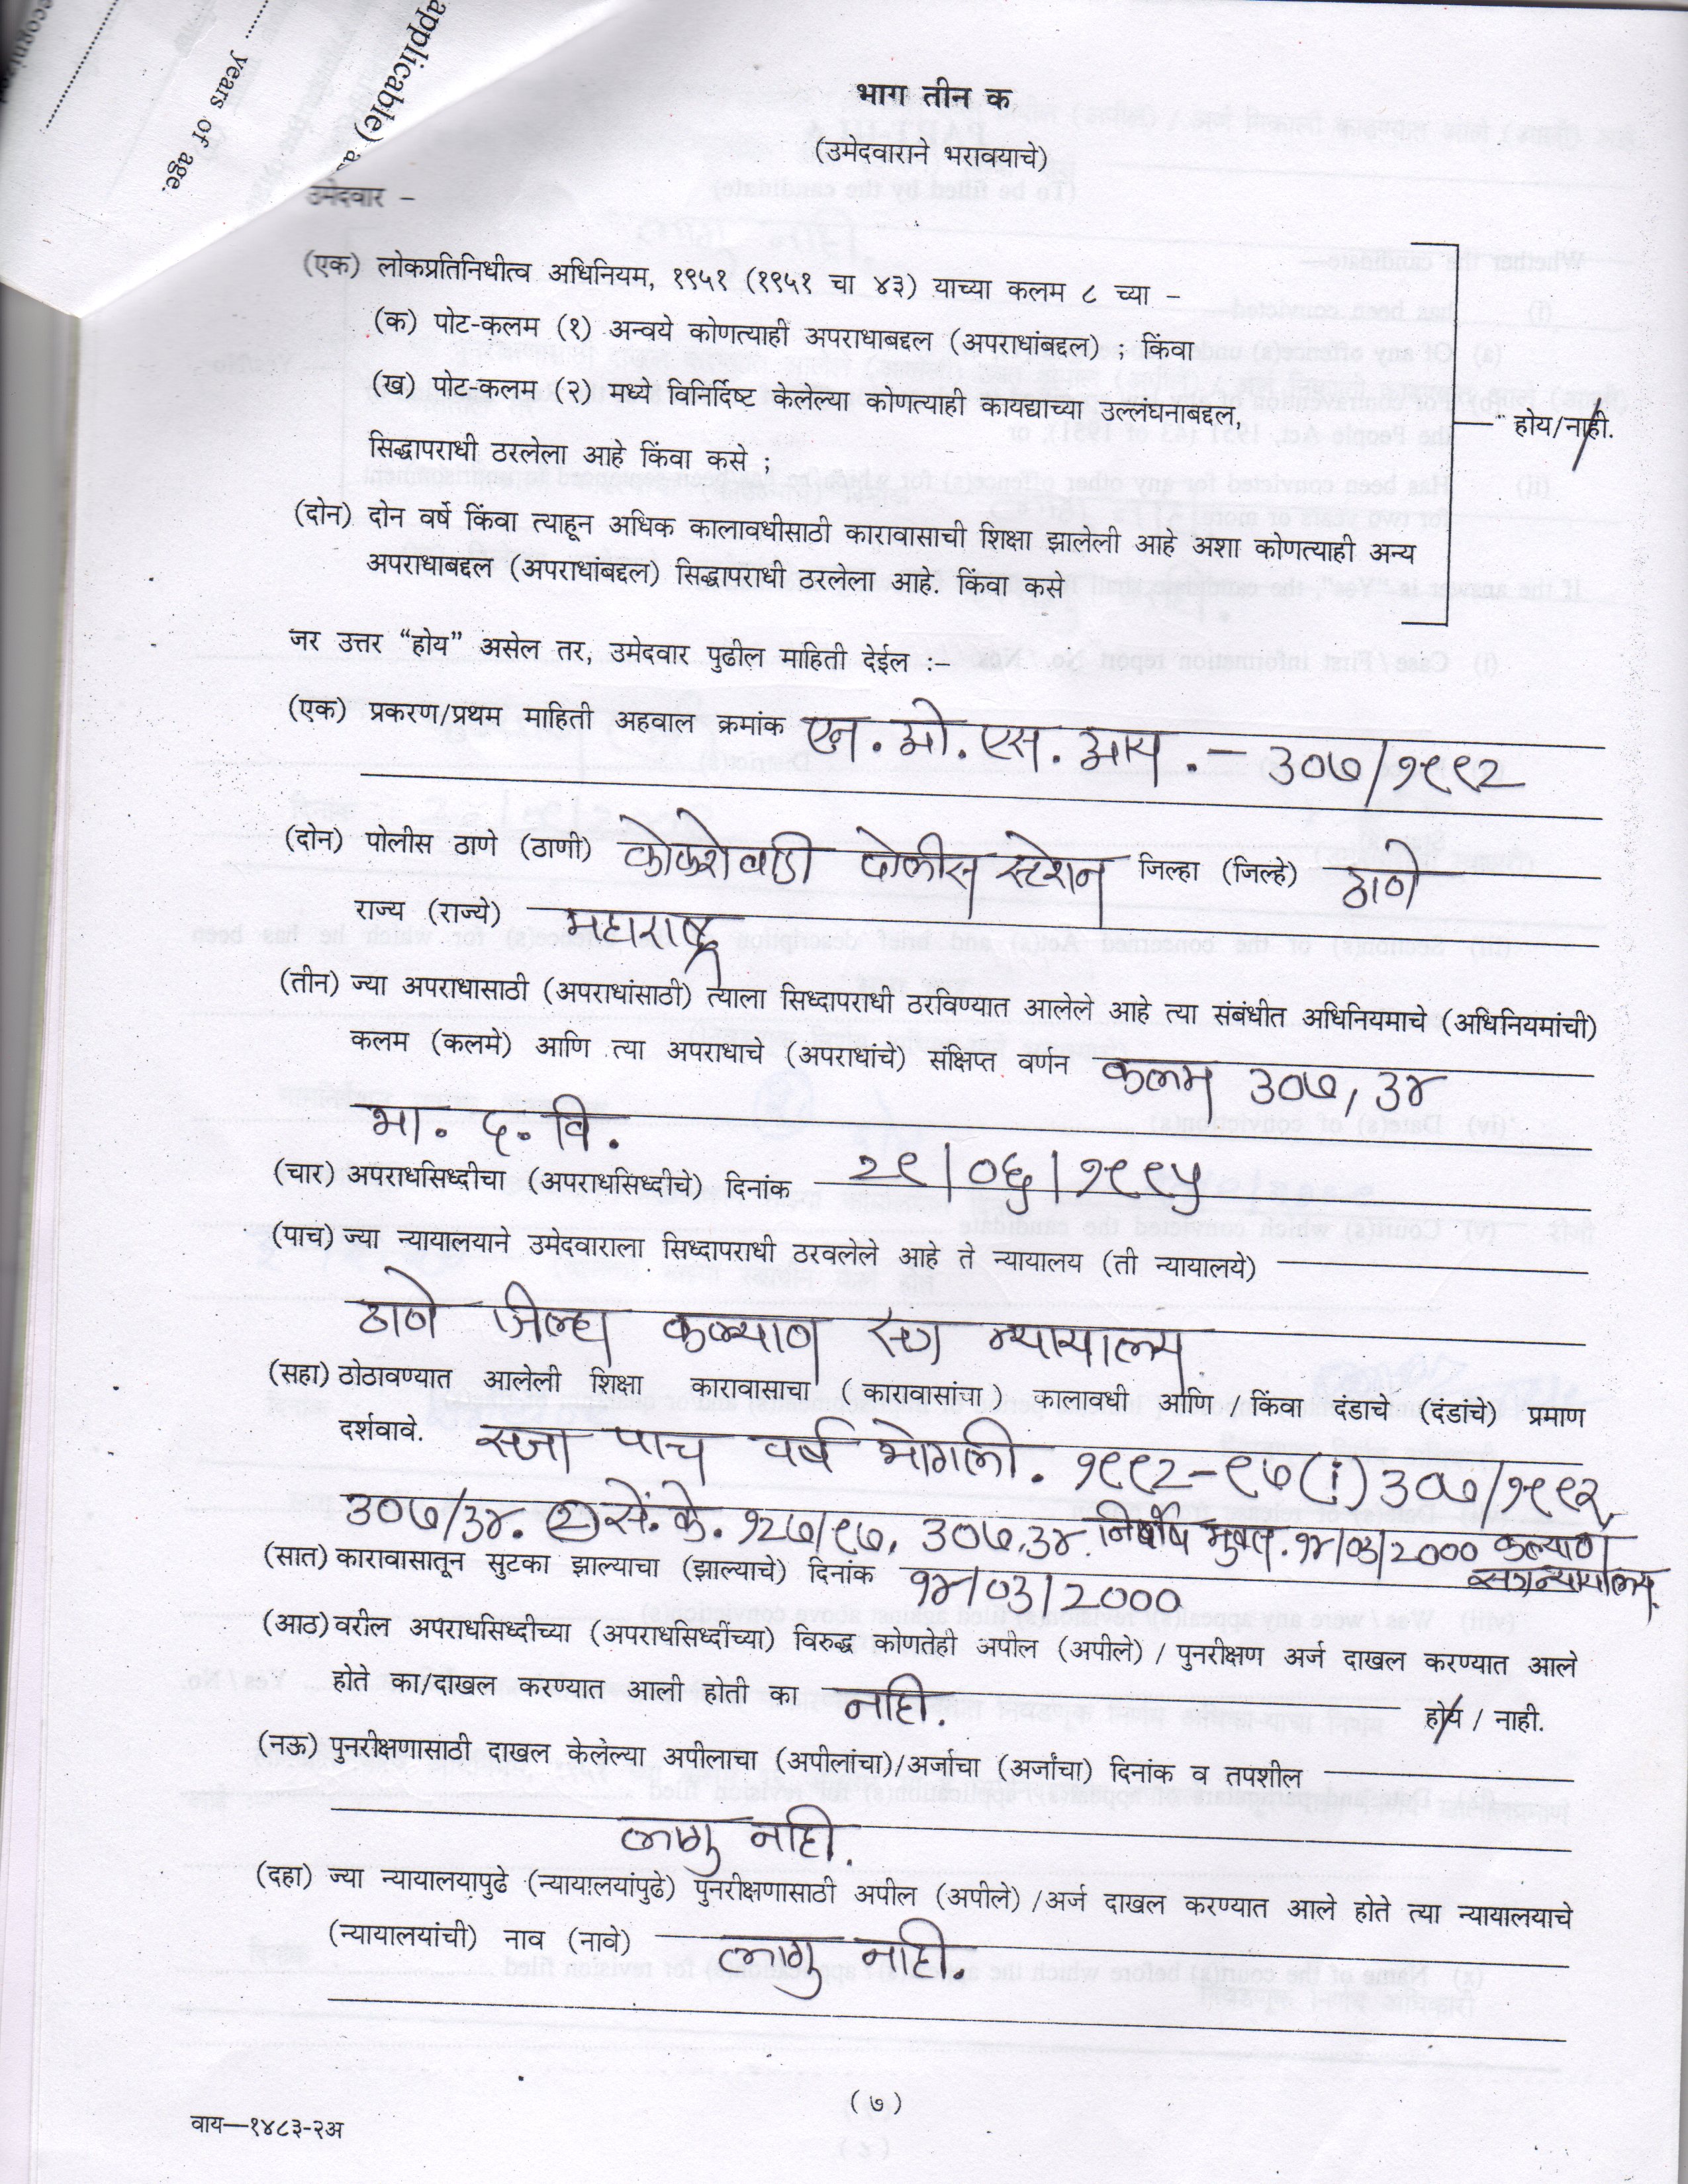 applicable)
years of age.
भाग तीन क
(उमेदवाराने भरावयाचे)
उमेदवार –
(एक) लोकप्रतिनिधीत्व अधिनियम, १९५१ (१९५१ चा ४३) याच्या कलम ८ च्या –
(क) पोट-कलम (१) अन्वये कोणत्याही अपराधाबद्दल (अपराधांबद्दल) ; किंवा
(ख) पोट-कलम (२) मध्ये विनिर्दिष्ट केलेल्या कोणत्याही कायद्याच्या उल्लंघनाबद्दल,
होय/नाही.
सिद्धापराधी ठरलेला आहे किंवा कसे ;
(दोन) दोन वर्षे किंवा त्याहून अधिक कालावधीसाठी कारावासाची शिक्षा झालेली आहे अशा कोणत्याही अन्य
अपराधाबद्दल (अपराधांबद्दल) सिद्धापराधी ठरलेला आहे. किंवा कसे
जर उत्तर “होय” असेल तर, उमेदवार पुढील माहिती देईल :–
(एक) प्रकरण/प्रथम माहिती अहवाल क्रमांक एन. ओ. एस. आय. – ३०७/१९९२
(दोन) पोलीस ठाणे (ठाणी) कोळशेवाडी पोलीस स्टेशन जिल्हा (जिल्हे) ठाणे
राज्य (राज्ये) महाराष्ट्र
(तीन) ज्या अपराधासाठी (अपराधांसाठी) त्याला सिध्दापराधी ठरविण्यात आलेले आहे त्या संबंधीत अधिनियमाचे (अधिनियमांची)
कलम (कलमे) आणि त्या अपराधाचे (अपराधांचे) संक्षिप्त वर्णन कलम ३०७, ३४
भा. द. वि.
(चार) अपराधसिध्दीचा (अपराधसिध्दीचे) दिनांक २९/०६/१९९५
(पाच) ज्या न्यायालयाने उमेदवाराला सिध्दापराधी ठरवलेले आहे ते न्यायालय (ती न्यायालये)
ठाणे जिल्हा कल्याण सत्र न्यायालय
(सहा) ठोठावण्यात आलेली शिक्षा कारावासाचा (कारावासांचा) कालावधी आणि / किंवा दंडाचे (दंडांचे) प्रमाण
दर्शवावे. सजा पाच वर्ष भोगली. १९९२–९७ (i) ३०७/१९९२
३०७/३४. (२) सें. के. १२७/९७, ३०७,३४ निर्दोष मुक्त. १४/०३/२००० कल्याण
सत्र न्यायालय.
(सात) कारावासातून सुटका झाल्याचा (झाल्याचे) दिनांक १४/०३/२०००
(आठ) वरील अपराधसिध्दीच्या (अपराधसिध्दींच्या) विरुद्ध कोणतेही अपील (अपीले) / पुनरीक्षण अर्ज दाखल करण्यात आले
होते का/दाखल करण्यात आली होती का नाही. होय / नाही.
(नऊ) पुनरीक्षणासाठी दाखल केलेल्या अपीलाचा (अपीलांचा)/अर्जाचा (अर्जांचा) दिनांक व तपशील
लागु नाही.
(दहा) ज्या न्यायालयापुढे (न्यायालयांपुढे) पुनरीक्षणासाठी अपील (अपीले) /अर्ज दाखल करण्यात आले होते त्या न्यायालयाचे
(न्यायालयांची) नाव (नावे) लागु नाही.
(७)
वाय—१४८३-२अ